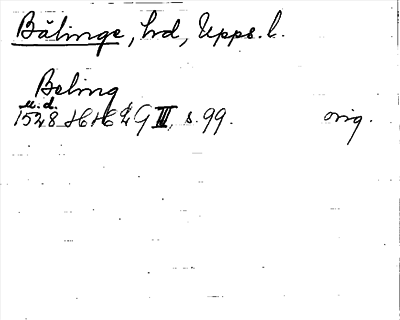 Bälinge, hd, Upps. l.
Beling
u. d.
1528 HH £ G III, s. 99. orig.